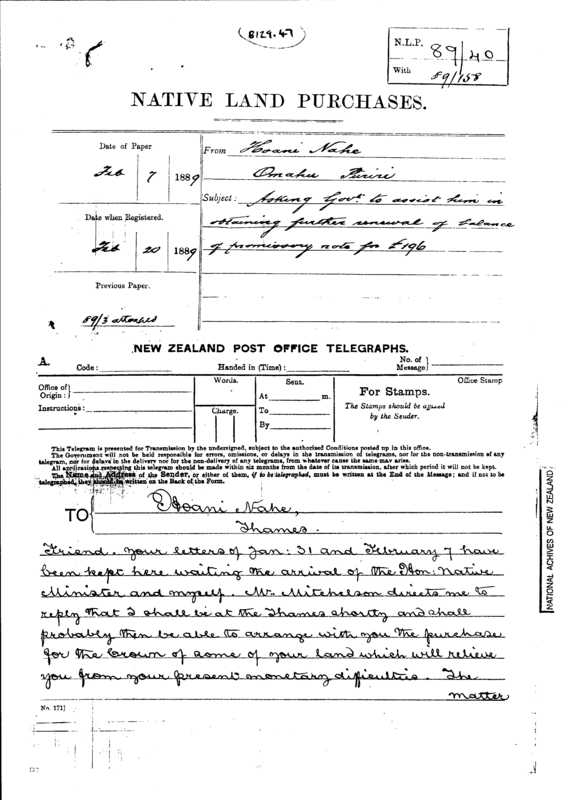 (8129.47)
N.L.P. 89/40
With 89/158
NATIVE LAND PURCHASES.
Date of Paper
Feb 7 1889
Date when Registered.
Feb 20 1889
Previous Paper.
89/3 attached
From Hoani Nahe
Omahu Puriri
Subject: Asking Govt. to assist him in
obtaining further renewal of balance
of promissory note for £196
NEW ZEALAND POST OFFICE TELEGRAPHS.
A.
Code:
Handed in (Time):
No. of Message
Office of Origin:
Instructions:
Words.
Charge.
Sent.
At m.
To
By
For Stamps.
The Stamps should be affixed
by the Sender.
Office Stamp
This Telegram is presented for Transmission by the undersigned, subject to the authorised Conditions posted up in this office.
The Government will not be held responsible for errors, omissions, or delays in the transmission of telegrams, nor for the non-transmission of any
telegram, nor for delays in the delivery nor for the non-delivery of any telegrams, from whatever cause the same may arise.
All applications respecting this telegram should be made within six months from the date of its transmission, after which period it will not be kept.
The Name and Address of the Sender, or either of them, if to be telegraphed, must be written at the End of the Message; and if not to be
telegraphed, they should be written on the Back of the Form.
TO
Hoani Nahe,
Thames.
Friend. Your letters of Jan: 31 and February 7 have
been kept here waiting the arrival of the Hon: Native
Minister and myself. Mr. Mitchelson directs me to
reply that I shall be at the Thames shortly and shall
probably then be able to arrange with you the purchase
for the Crown of some of your land which will relieve
you from your present monetary difficulties. The
matter
No. 171]
NATIONAL ACHIVES OF NEW ZEALAND